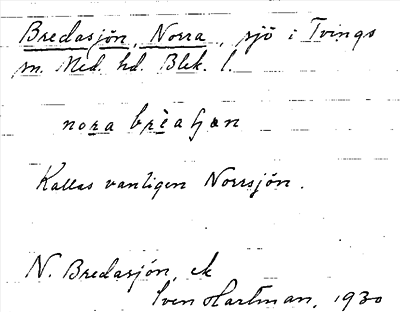 Bredasjön, Norra, sjö i Tvings
sn. Med. hd. Blek. l.
nora
Kallas vanligen Norrsjön.
N. Bredasjön, ek
Sven Hartman, 1930